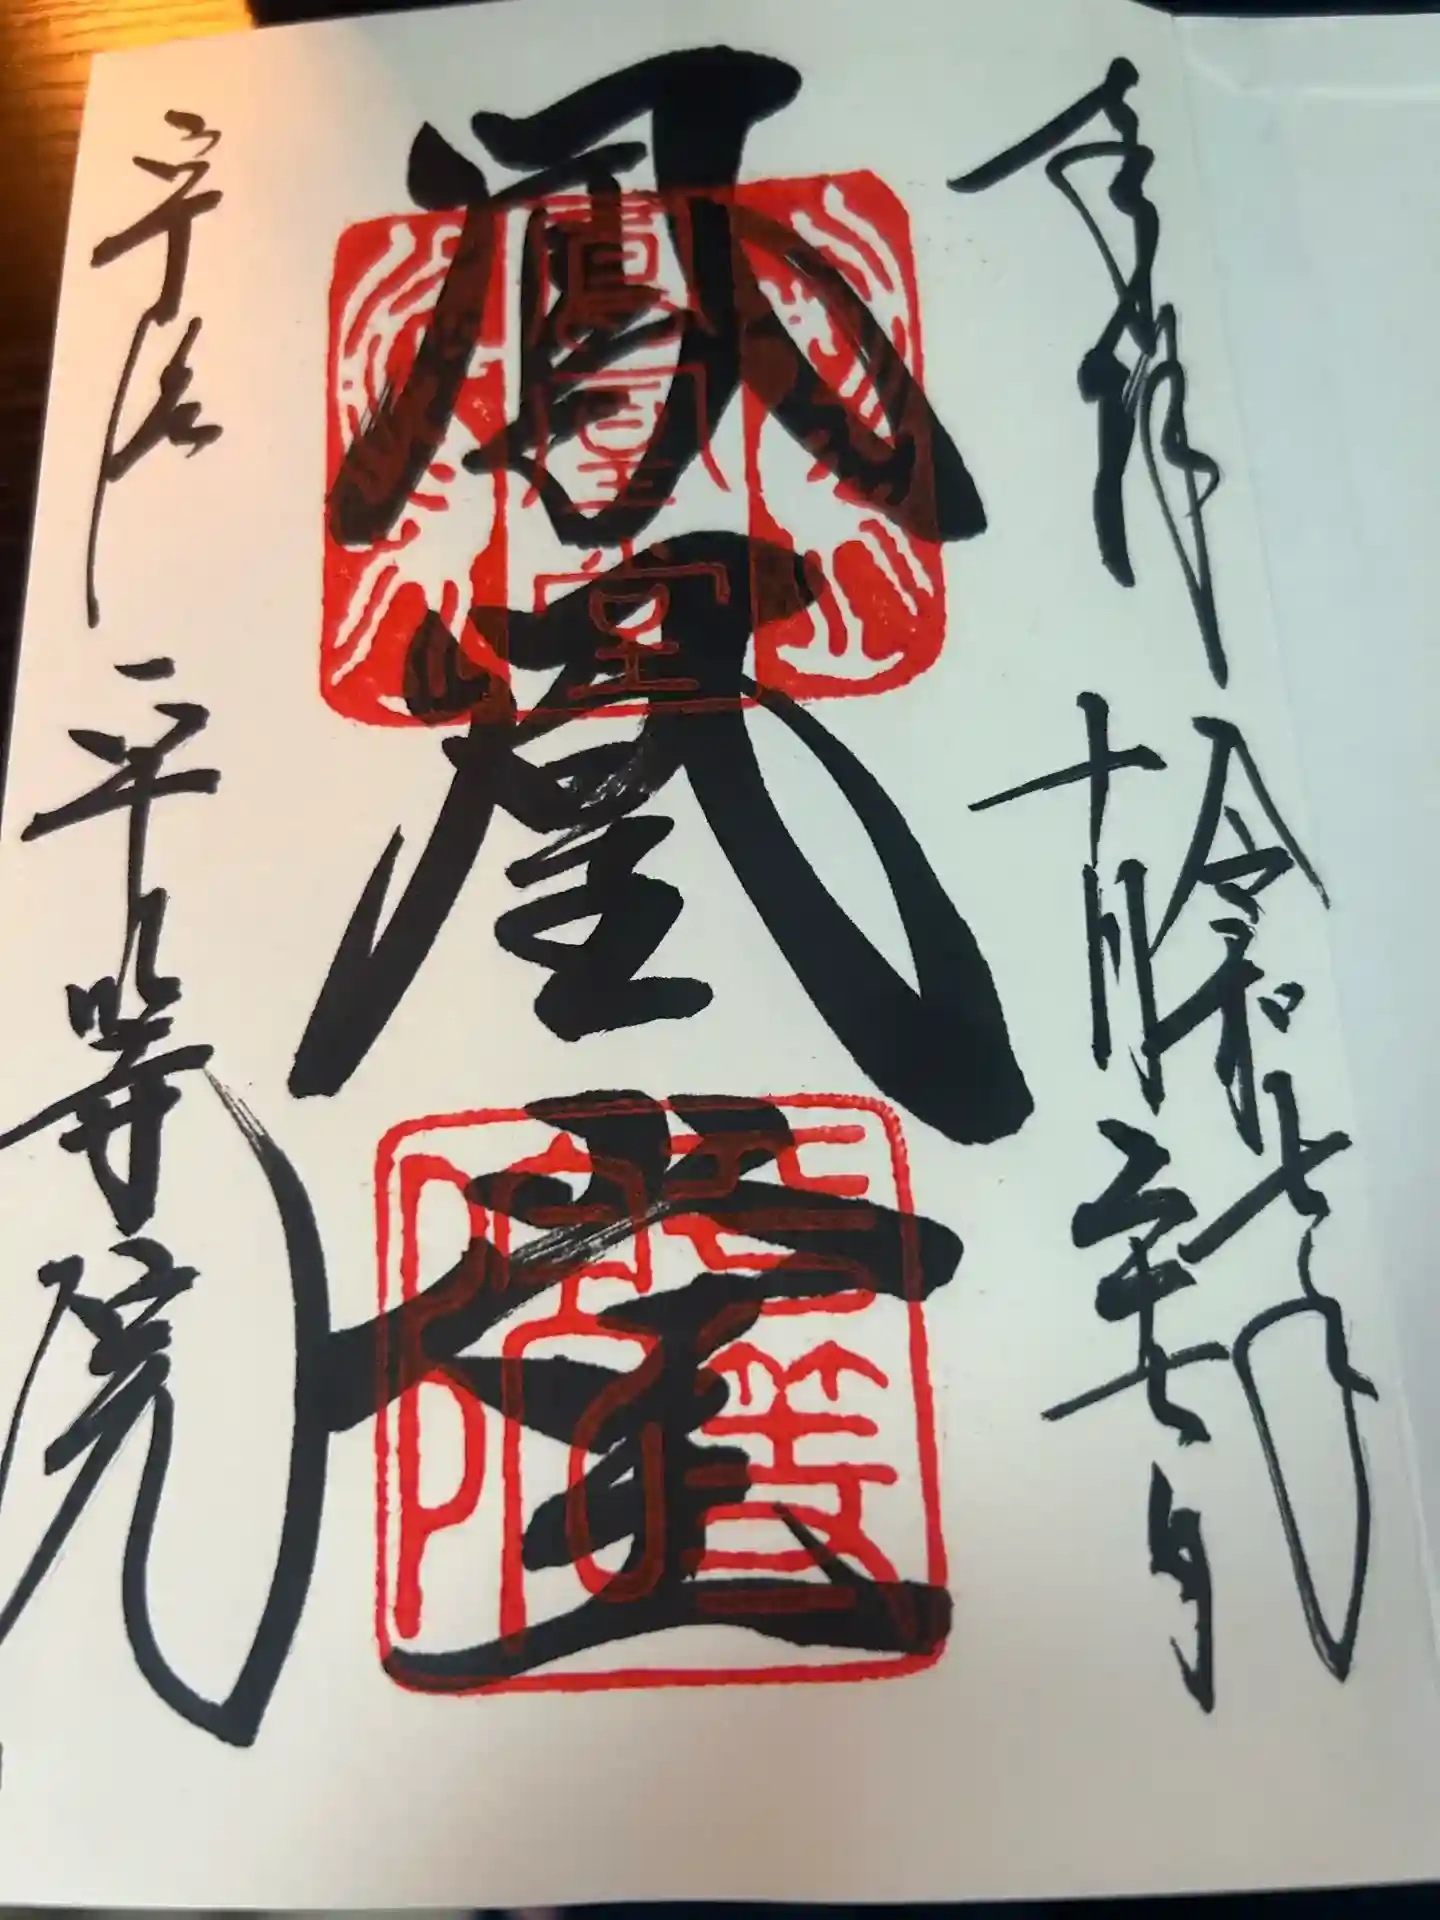 奉拝
令和七年
十月二十七日
鳳凰堂
鳳凰堂
平等院
宇治 平等院